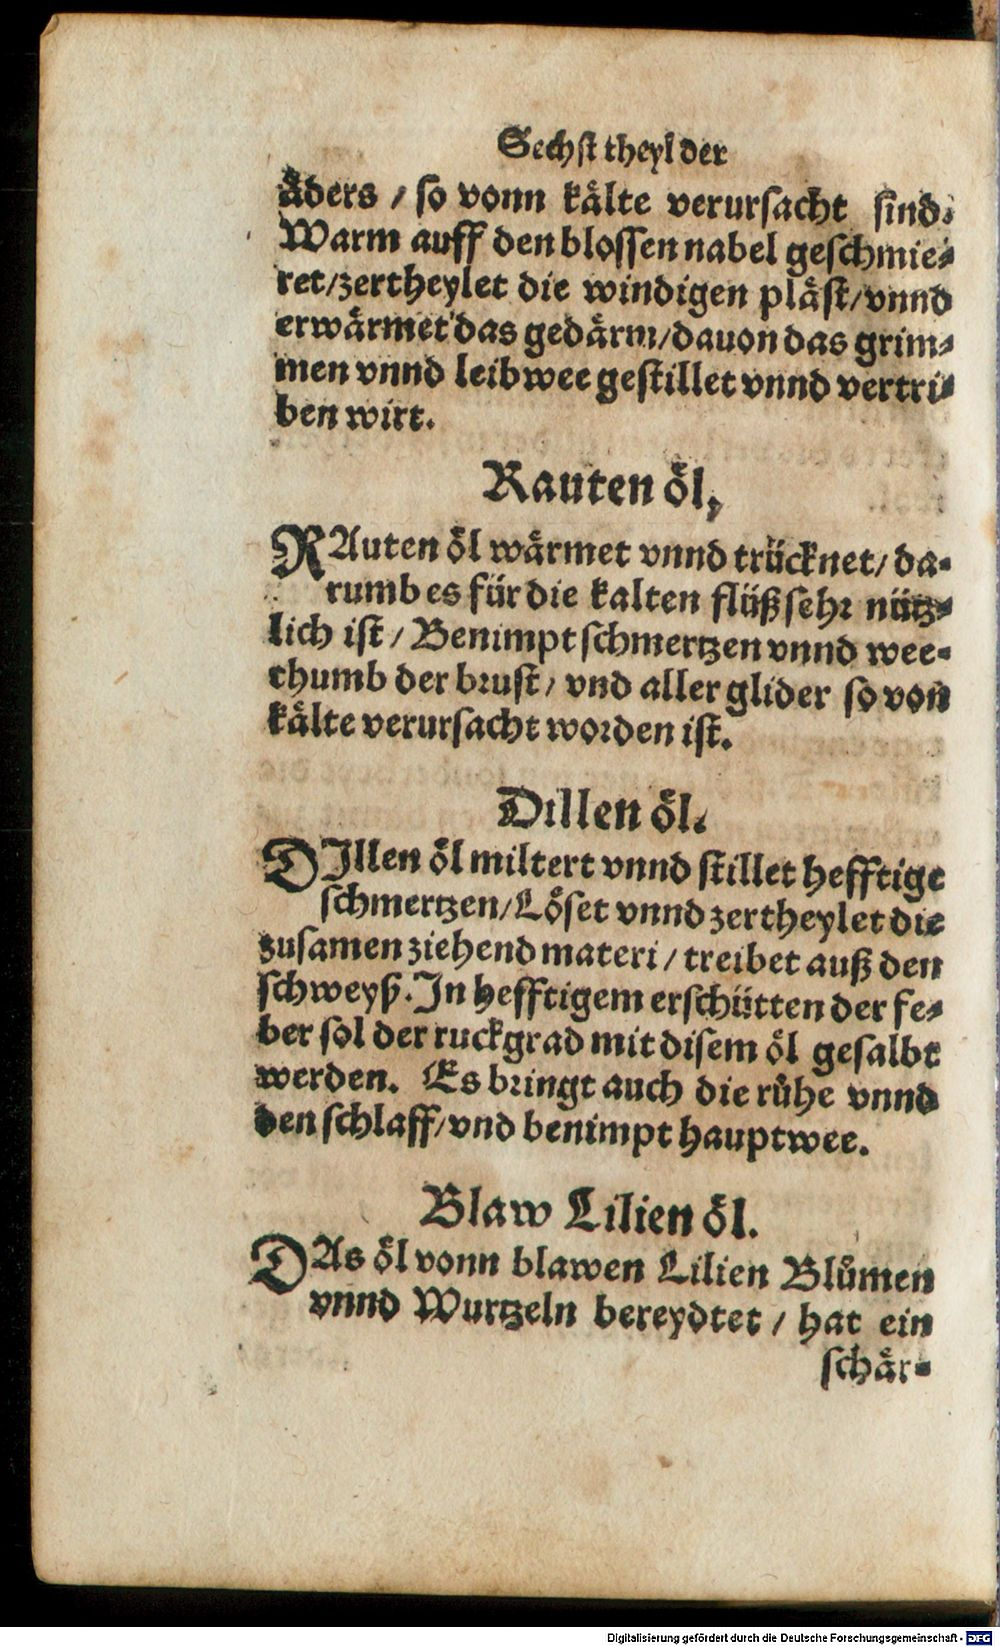 Sechst theyl der
äders / so vonn kälte verursacht sind.
Warm auff den blossen nabel geschmie-
ret/zertheylet die windigen pläst/vnnd
erwärmet das gedärm/dauon das grim-
men vnnd leibwee gestillet vnnd vertri-
ben wirt.
Rauten öl,
RAuten öl wärmet vnnd trücknet/ da-
rumb es für die kalten flüß sehr nütz-
lich ist / Benimpt schmertzen vnnd wee-
thumb der brust/ vnd aller glider so von
kälte verursacht worden ist.
Dillen öl.
DIllen öl miltert vnnd stillet hefftige
schmertzen/Löset vnnd zertheylet die
zusamen ziehend materi / treibet auß den
schweyß. In hefftigem erschütten der fe-
ber sol der ruckgrad mit disem öl gesalbt
werden. Es bringt auch die růhe vnnd
den schlaff/vnd benimpt hauptwee.
Blaw Lilien öl.
DAs öl vonn blawen Lilien Blůmen
vnnd Wurtzeln bereydtet / hat ein
schär-
Digitalisierung gefördert durch die Deutsche Forschungsgemeinschaft - DFG